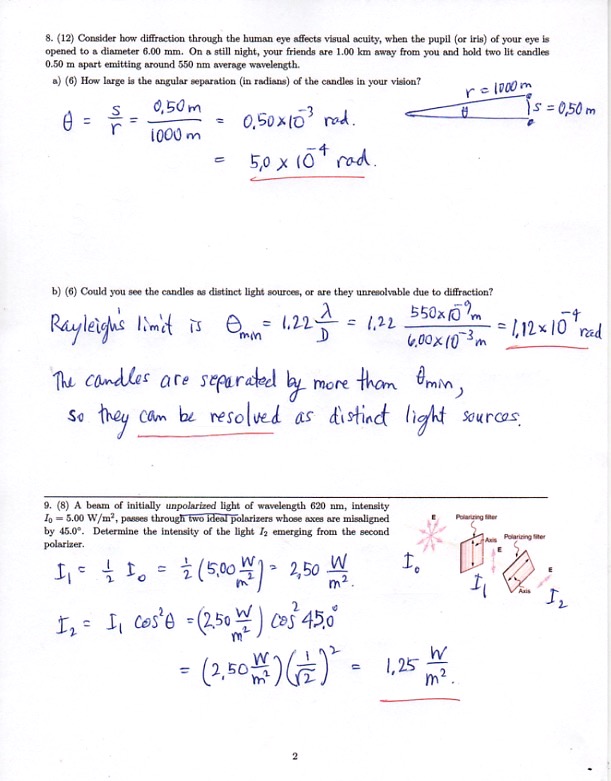 8. (12) Consider how diffraction through the human eye affects visual acuity, when the pupil (or iris) of your eye is
opened to a diameter 6.00 mm. On a still night, your friends are 1.00 km away from you and hold two lit candles
0.50 m apart emitting around 550 nm average wavelength.
a) (6) How large is the angular separation (in radians) of the candles in your vision?
r = 1000 m
θ
s = 0,50 m
θ = s/r = 0,50 m / 1000 m = 0,50 x 10⁻³ rad.
= 5,0 x 10⁻⁴ rad.
b) (6) Could you see the candles as distinct light sources, or are they unresolvable due to diffraction?
Rayleigh's limit is θmin = 1,22 λ/D = 1,22 550x10⁻⁹m / 6,00x10⁻³m = 1,12 x 10⁻⁴ rad
The candles are separated by more than θmin,
so they can be resolved as distinct light sources.
9. (8) A beam of initially unpolarized light of wavelength 620 nm, intensity
I₀ = 5.00 W/m², passes through two ideal polarizers whose axes are misaligned
by 45.0°. Determine the intensity of the light I₂ emerging from the second
polarizer.
E
Polarizing filter
Axis
E
Polarizing filter
Axis
E
I₀
I₁
I₂
I₁ = ½ I₀ = ½ (5,00 W/m²) = 2,50 W/m².
I₂ = I₁ cos²θ = (2,50 W/m²) cos² 45,0°
= (2,50 W/m²)(1/√2)² = 1,25 W/m².
2